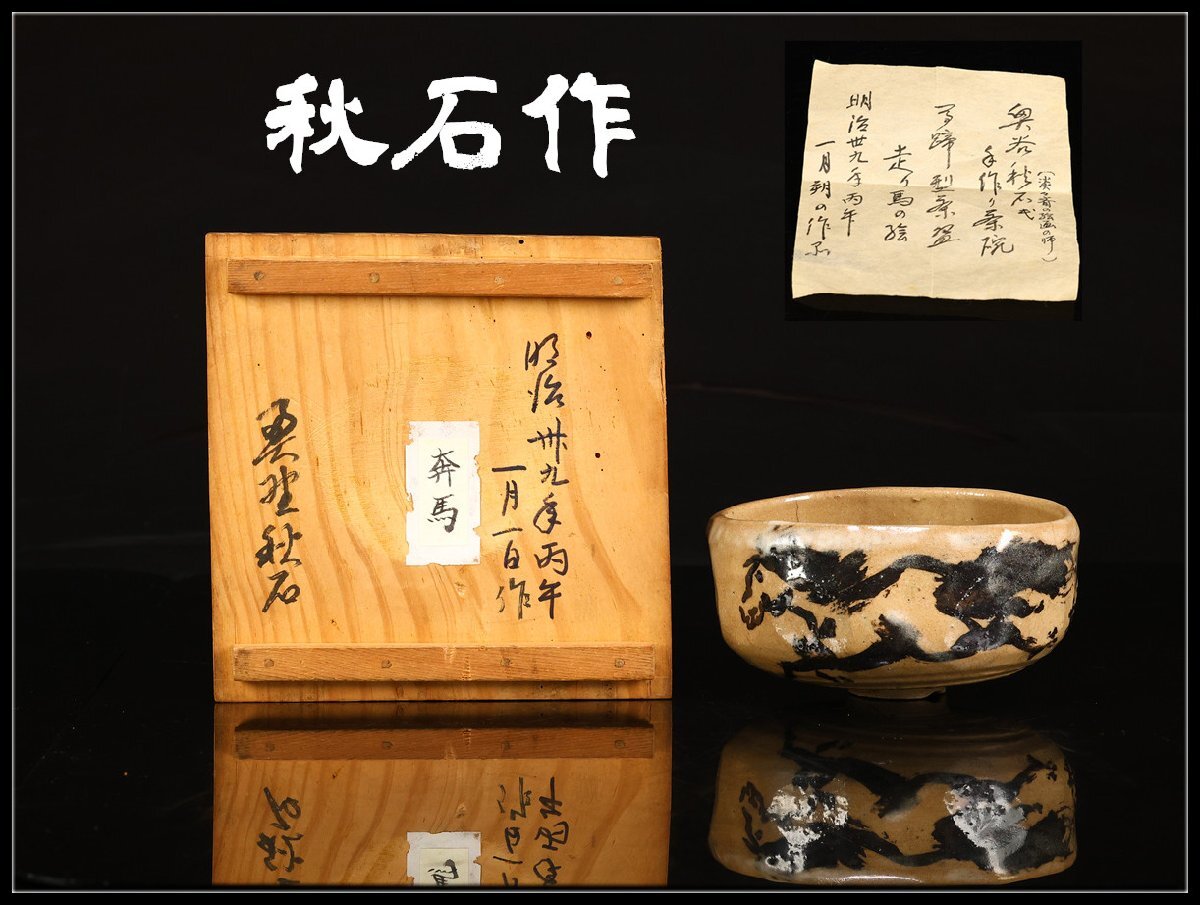 秋石作
奥谷秋石氏
手作り茶碗
馬蹄型茶盌
走り馬の絵
明治卅九年丙午
一月朔の作品
明治卅九年丙午
一月一日作
奔馬
秋石